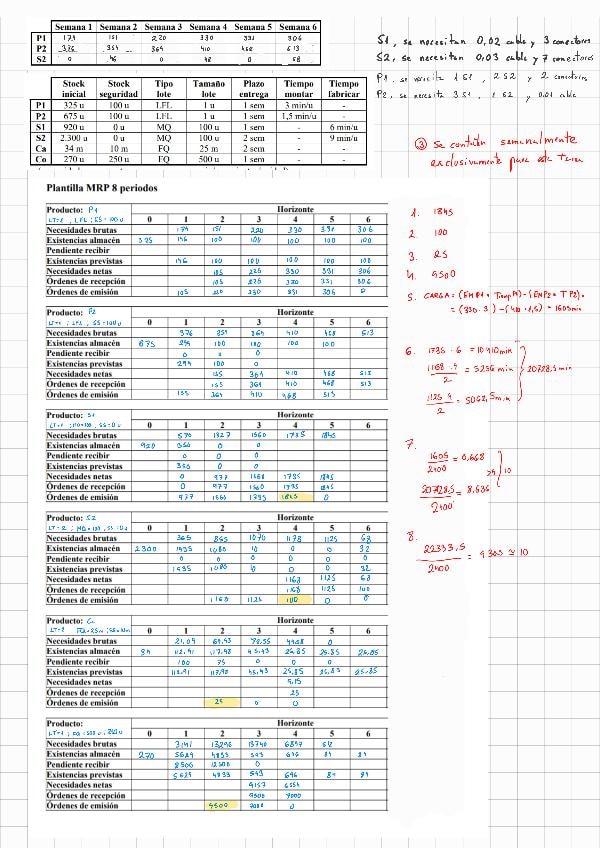 Semana 1 Semana 2 Semana 3 Semana 4 Semana 5 Semana 6
P1 179 151 220 330 331 306
P2 376 354 364 410 468 513
S2 0 46 0 48 0 68
S1, se necesitan 0,02 cable y 3 conectores
S2, se necesitan 0,03 cable y 7 conectores
P1, se necesita 1 S1, 2 S2 y 2 conectores
P2, se necesita 3 S1, 1 S2 y 0,01 cable
③ Se contratan semanalmente
exclusivamente para esta tarea
Stock inicial Stock seguridad Tipo lote Tamaño lote Plazo entrega Tiempo montar Tiempo fabricar
P1 325 u 100 u LFL 1 u 1 sem 3 min/u -
P2 675 u 100 u LFL 1 u 1 sem 1,5 min/u -
S1 920 u 0 u MQ 100 u 1 sem - 6 min/u
S2 2.300 u 0 u MQ 100 u 2 sem - 9 min/u
Ca 34 m 10 m FQ 25 m 2 sem - -
Co 270 u 250 u FQ 500 u 1 sem - -
Plantilla MRP 8 periodos
Producto: P1 Horizonte
0 1 2 3 4 5 6
Necesidades brutas 179 151 220 330 331 306
Existencias almacén 325 146 100 100 100 100 100
Pendiente recibir
Existencias previstas 146 100 100 100 100 100
Necesidades netas 105 220 330 331 306
Órdenes de recepción 105 220 330 331 306
Órdenes de emisión 105 220 330 331 306 0
Producto: P2 Horizonte
0 1 2 3 4 5 6
Necesidades brutas 376 354 364 410 468 513
Existencias almacén 675 299 100 100 100 100
Pendiente recibir 0 0 0
Existencias previstas 299 100 0
Necesidades netas 155 364 410 468 513
Órdenes de recepción 155 364 410 468 513
Órdenes de emisión 155 364 410 468 513
Producto: S1 Horizonte
0 1 2 3 4 5 6
Necesidades brutas 570 1327 1560 1735 1845
Existencias almacén 920 350 0 0
Pendiente recibir 0 0 0
Existencias previstas 350 0 0
Necesidades netas 0 977 1560 1735 1845
Órdenes de recepción 0 977 1560 1735 1845
Órdenes de emisión 977 1560 1735 1845 0
Producto: S2 Horizonte
0 1 2 3 4 5 6
Necesidades brutas 365 855 1070 1178 1125 68
Existencias almacén 2300 1935 1080 10 0 0 32
Pendiente recibir 0 0 0 0 0 0
Existencias previstas 1935 1080 10 0 0 32
Necesidades netas 1168 1125 68
Órdenes de recepción 1168 1125 100
Órdenes de emisión 1168 1125 100 0 0
Producto: Ca Horizonte
0 1 2 3 4 5 6
Necesidades brutas 21,09 0
Existencias almacén 34 112,91 45,43 25,85 25,85 25,85
Pendiente recibir 100 75 0 0 0
Existencias previstas 112,91 45,43 25,85 25,85 25,85
Necesidades netas
Órdenes de recepción 25
Órdenes de emisión 25 0 0
Producto: Horizonte
0 1 2 3 4 5 6
Necesidades brutas 13296
Existencias almacén 270 4833 696
Pendiente recibir 8500 12500 0
Existencias previstas 4833 696
Necesidades netas
Órdenes de recepción 9500 7000
Órdenes de emisión 9500 7000 0
1. 1845
2. 100
3. 25
4. 9500
5. CARGA =
= 1605 min
6. 1735 · 6 = 10410 min
1168 · 9 / 2 = 5256 min
1125 · 9 / 2 = 5062,5 min
20728,5 min
7.
1605 / 2400 = 0,668
20728,5 / 2400 = 8,636
10
8.
22333,5 / 2400 = 9,305 ≃ 10